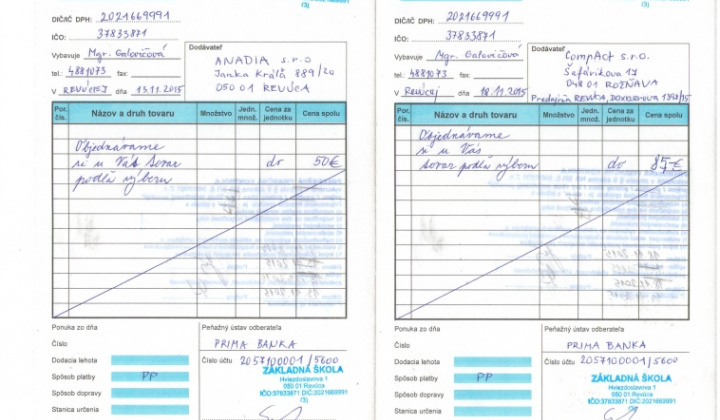 (3)
DIČ/IČ DPH: 2021669991
IČO: 37833871
Vybavuje Mgr. Galovičová
tel.: 4881073 fax:
V REVÚCEJ dňa 13.11.2015
Dodávateľ
ANADIA s.r.o
Janka Kráľa 889/20
050 01 REVÚCA
Por. čís. Názov a druh tovaru Množstvo Jedn. množ. Cena za jednotku Cena spolu
Objednávame
si u Vás tovar do 50€
podľa výberu
Ponuka zo dňa
Číslo
Dodacia lehota
Spôsob platby PP
Spôsob dopravy
Stanica určenia
Peňažný ústav odberateľa
PRIMA BANKA
Číslo účtu 2057100001/5600
ZÁKLADNÁ ŠKOLA
Hviezdoslavova 1
050 01 Revúca
IČO:37833871 DIČ:2021669991
(3)
DIČ/IČ DPH: 2021669991
IČO: 37833871
Vybavuje Mgr. Galovičová
tel.: 4881073 fax:
V REVÚCEJ dňa 18.11.2015
Dodávateľ
CompAct s.r.o.
Šafárikova 17
048 01 ROŽŇAVA
Predajňa REVÚCA,
Por. čís. Názov a druh tovaru Množstvo Jedn. množ. Cena za jednotku Cena spolu
Objednávame
si u Vás
tovar podľa výberu do 85,-€
Ponuka zo dňa
Číslo
Dodacia lehota
Spôsob platby PP
Spôsob dopravy
Stanica určenia
Peňažný ústav odberateľa
PRIMA BANKA
Číslo účtu 2057100001/5600
ZÁKLADNÁ ŠKOLA
Hviezdoslavova 1
050 01 Revúca
IČO:37833871 DIČ:2021669991
(3)